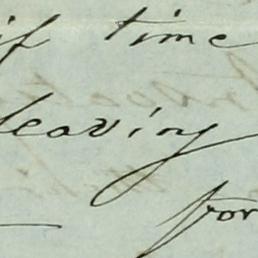 if time
leaving
for